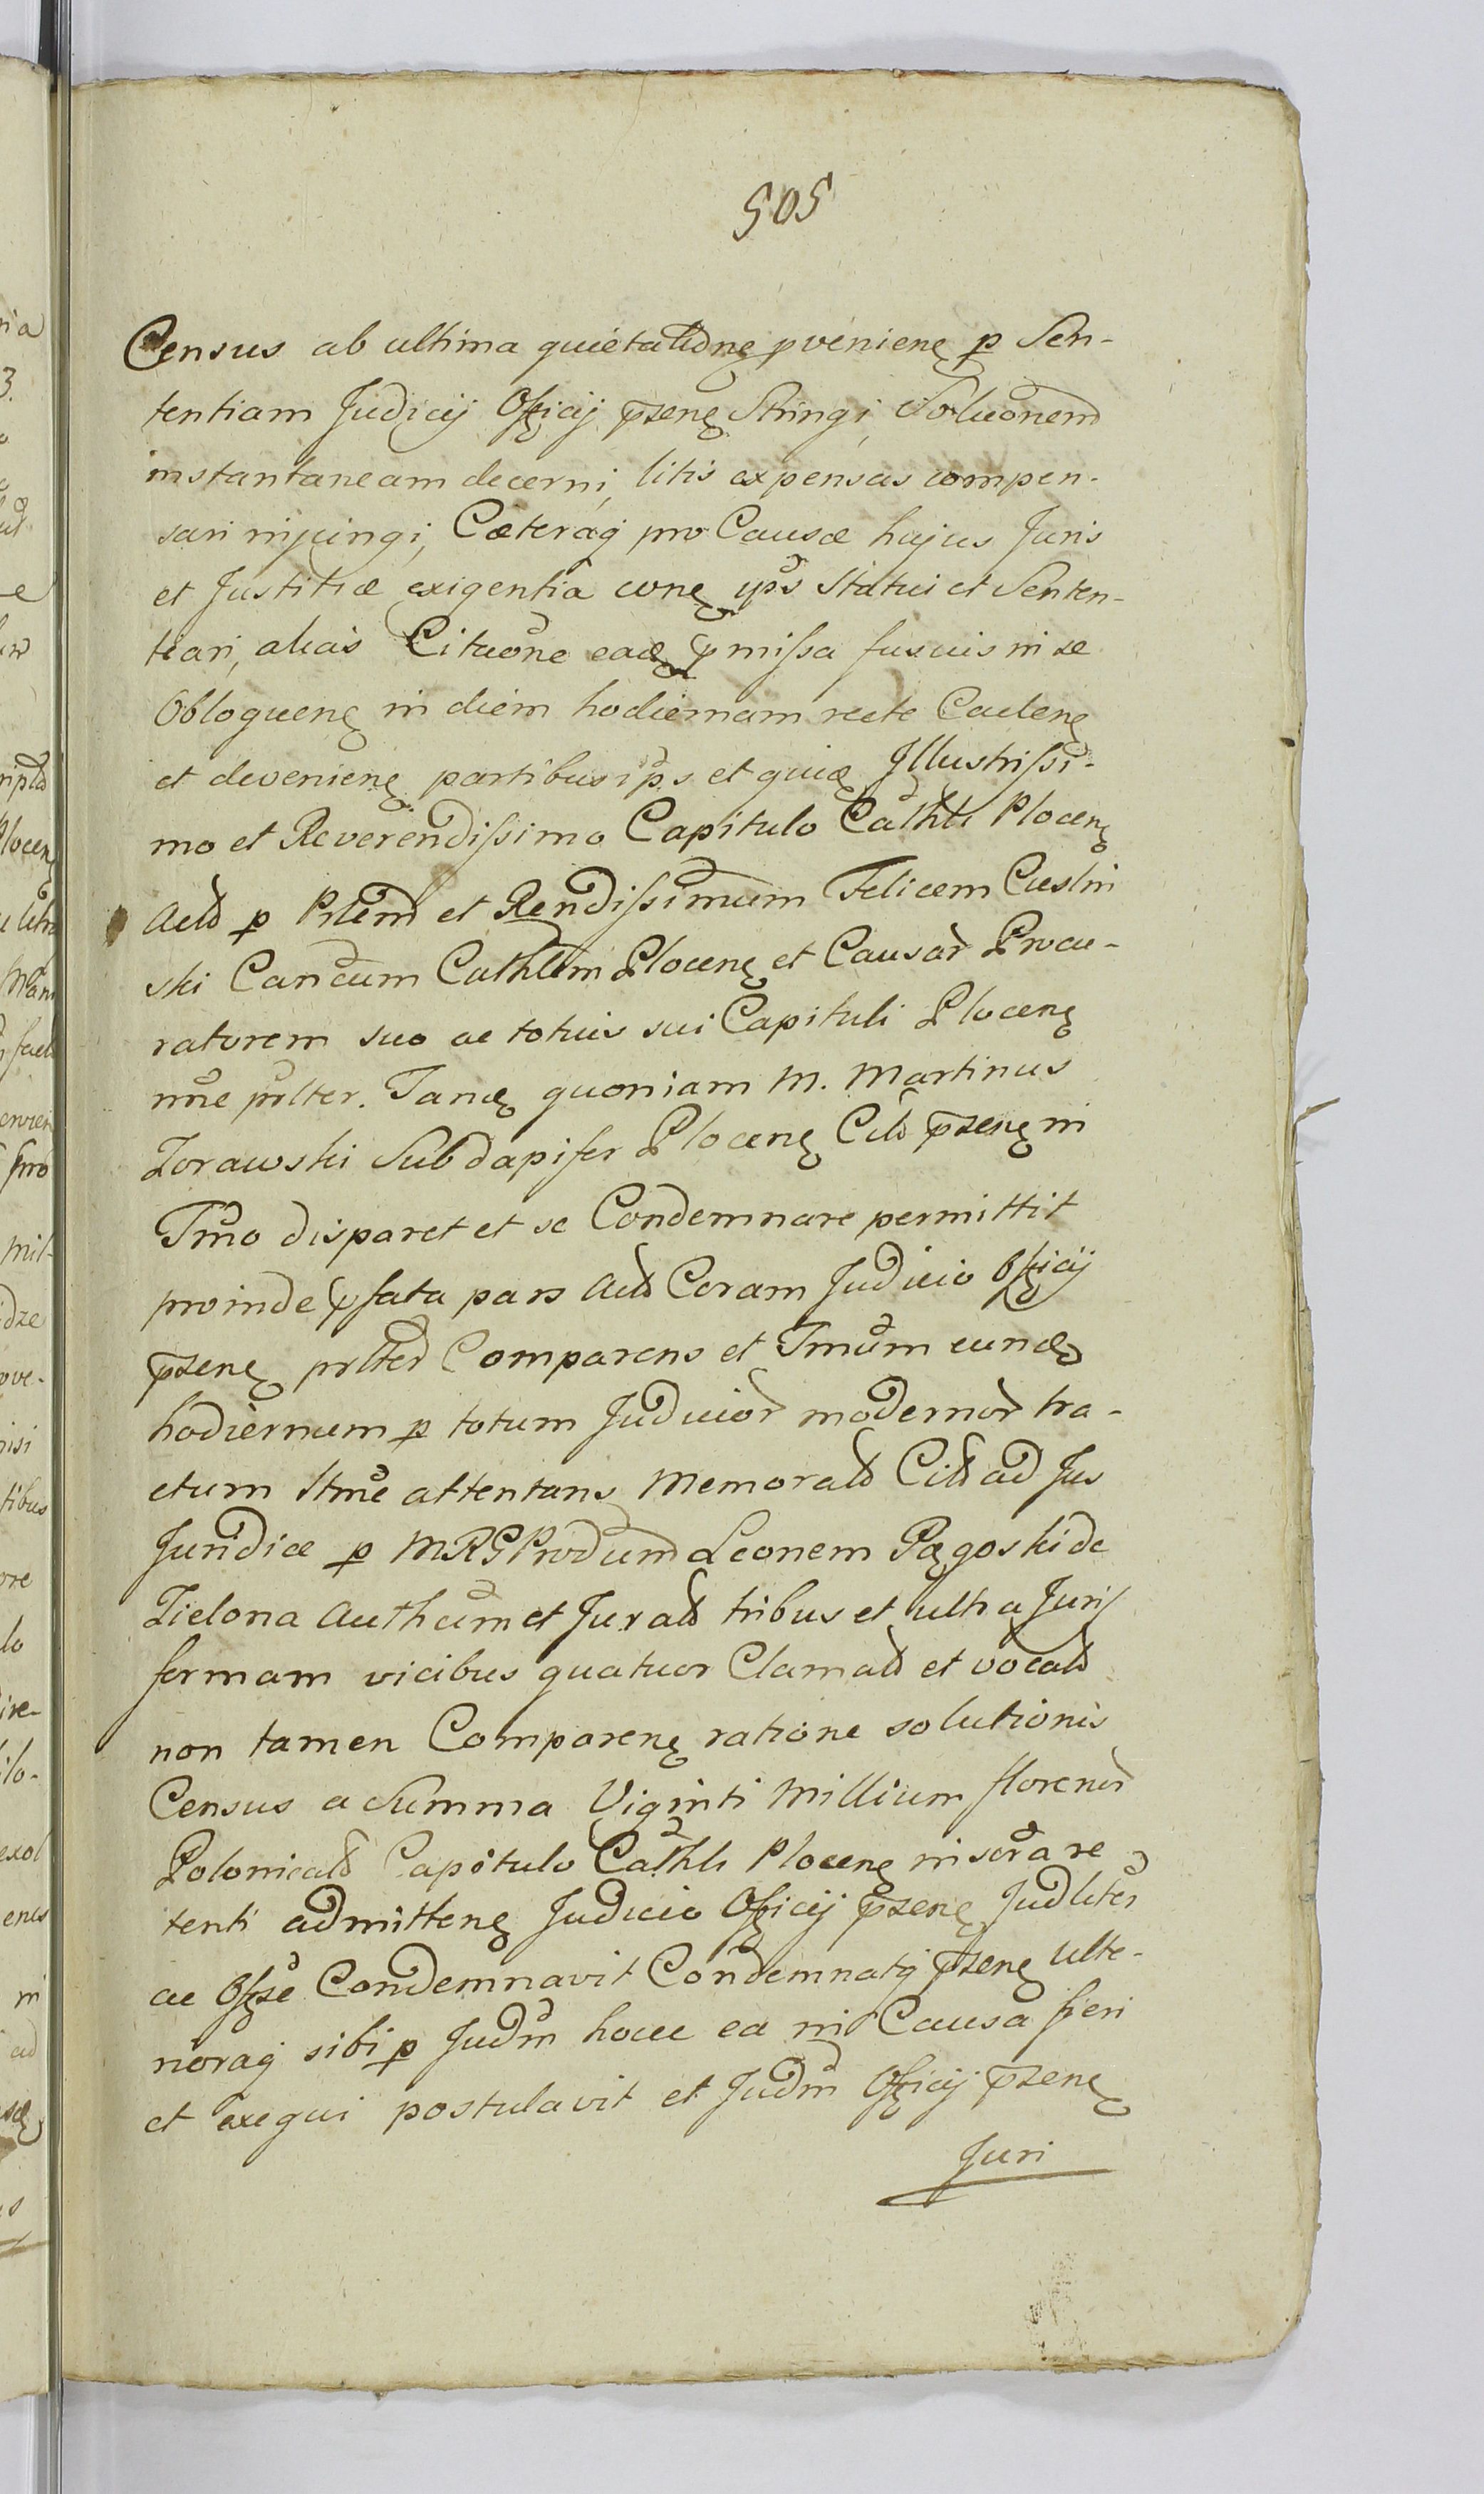 505
Census ab ultima quietatione pvenienę p Sen-
tentiam Judicij Officij pzenę Stringi, Soluonem
instantaneam decerni, litis expensas compen-
sari injungi, Cæteraq pro Causæ hujus Juris
et Justitiæ exigentia conę ips Statui et Senten-
tiari, alias Lituone eadę pmissa fusius in se
Obloquenę in diem hodiernam recte Cadenę
et devenienę partibus ips et quidę Illustrissi-
mo et Reverendissimo Capitulo Cathli Plocenę
Actð p Pltem et Rendissimum Felicem Cieslin
ski Cancum Cathlem Plocenę et Causar Procu-
ratorem suo ac totius sui Capituli Plocenę
nne psltter. Tandę quoniam M. Martinus
Zorawski Subdapifer Plocenę Citð pzenę in
Tmo disparet et se Condemnare permittit
proinde pfata pars Actð Coram Judicio Officij
pzenę psltter Comparens et Tmum eundę
hodiernum p totum Judicior modernor tra-
ctum Stme attentans Memoratð Citð ad Jus
Juridice p MRG Produm Leonem Pągoski de
Zielona Authum et Juratð tribus et ultra Juris
formam vicibus quatuor Clamatð et vocatð
non tamen Comparenę ratione solutionis
Census a Summa Viginti Millium florenor
Polonicalð Capitulo Cathli Plocenę inscra re
tenti admittenę Judicio Officij pzenę Judltter
ac Offse Condemnavit Condemnatq pzenę Ulte-
rioraq sibi p Judm hocce ea in Causa fieri
et exequi postulavit et Judm Officij pzenę
Juri